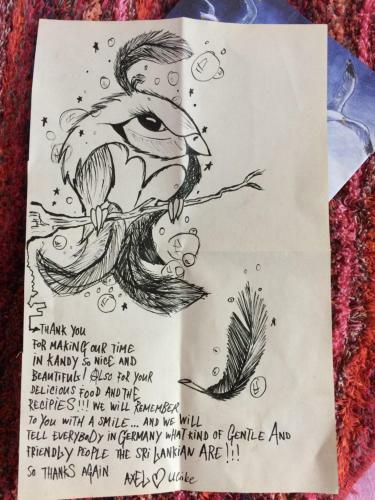 THANK YOU
FOR MAKING OUR TIME
IN KANDY SO NICE AND
BEAUTIFUL! ALSO FOR YOUR
DELICIOUS FOOD AND THE
RECIPIES!!! WE WILL REMEMBER
TO YOU WITH A SMILE... AND WE WILL
TELL EVERYBODY IN GERMANY WHAT KIND OF GENTLE AND
FRIENDLY PEOPLE THE SRI LANKIAN ARE!!!
SO THANKS AGAIN AXEL ♡ Ulrike